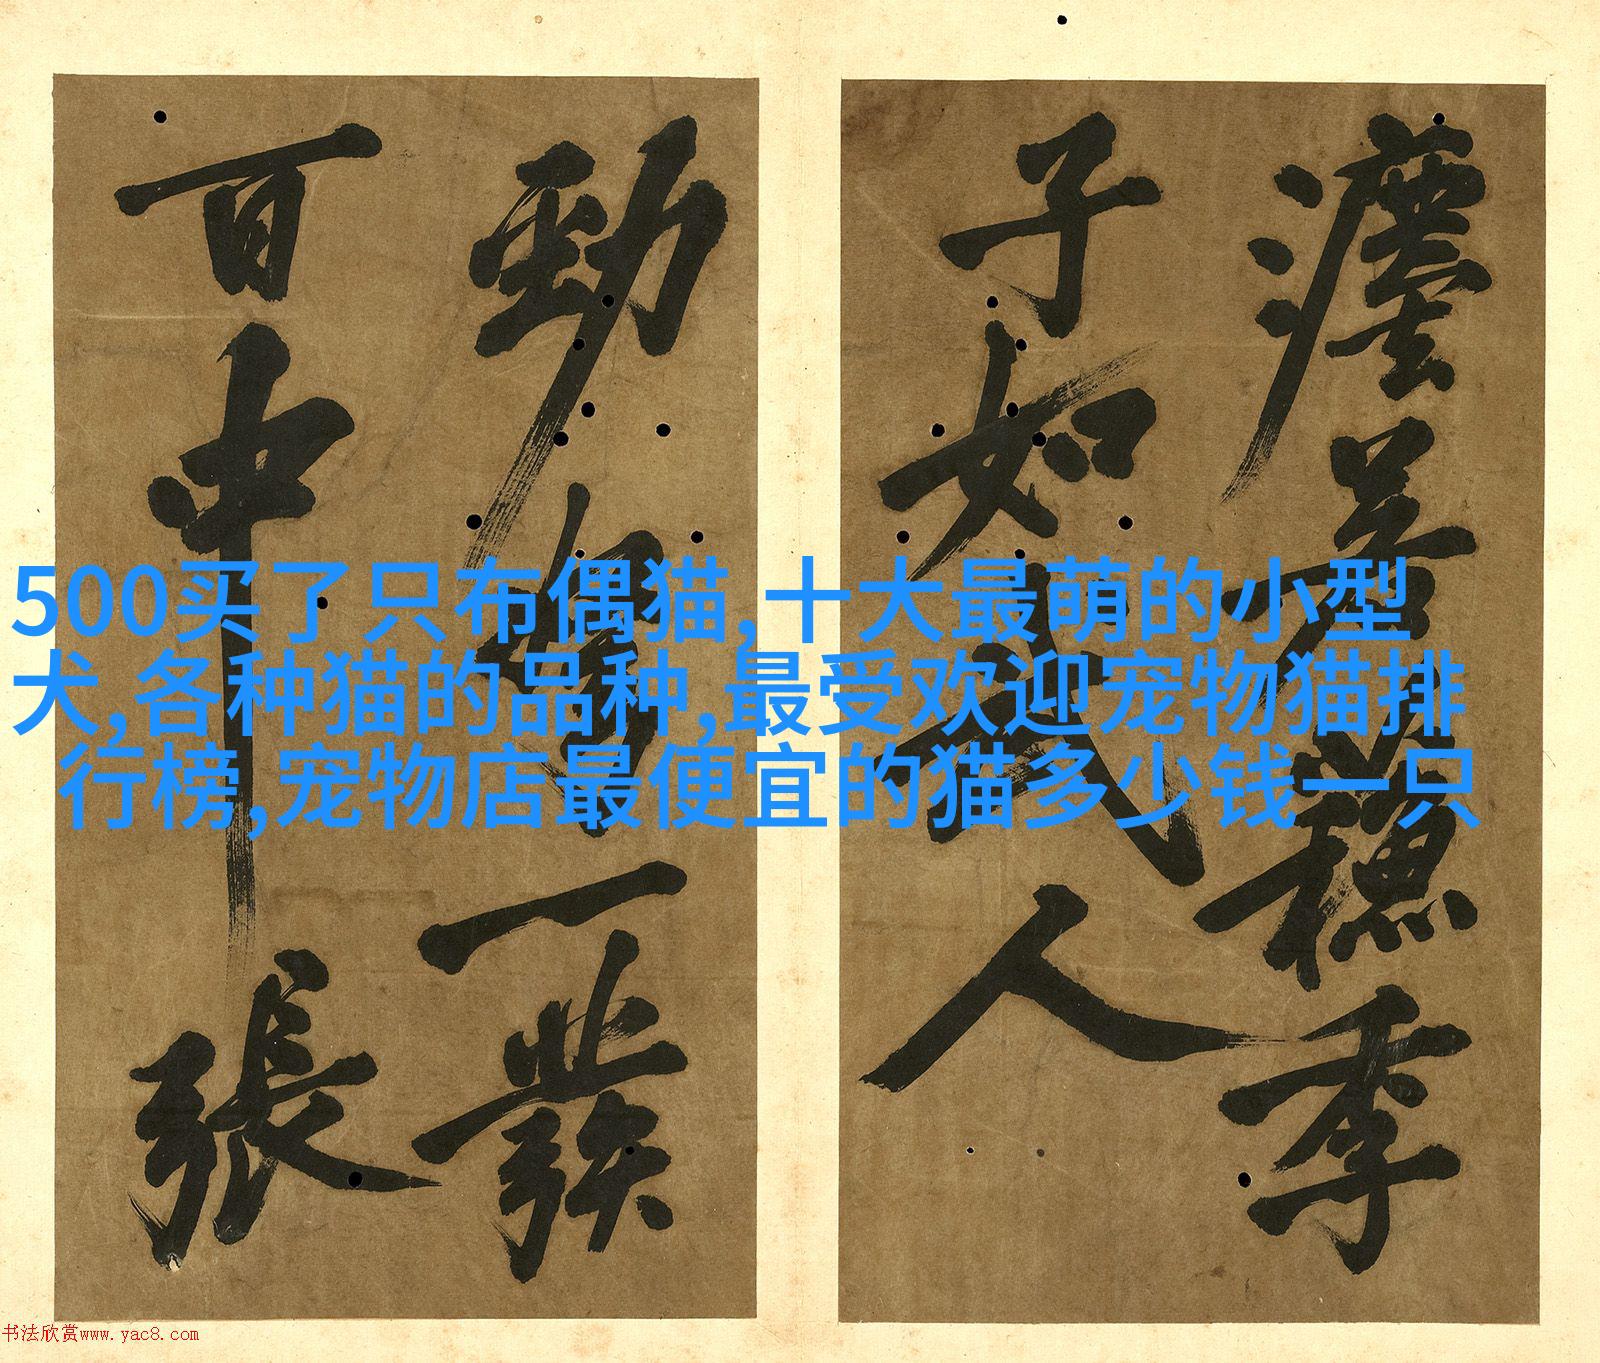 穗季
子如武人
勁弩一發
百中張
500买了只布偶猫,十大最萌的小型
犬,各种猫的品种,最受欢迎宠物猫排
行榜,宠物店最便宜的猫多少钱一只
书法欣赏www.yac8.com